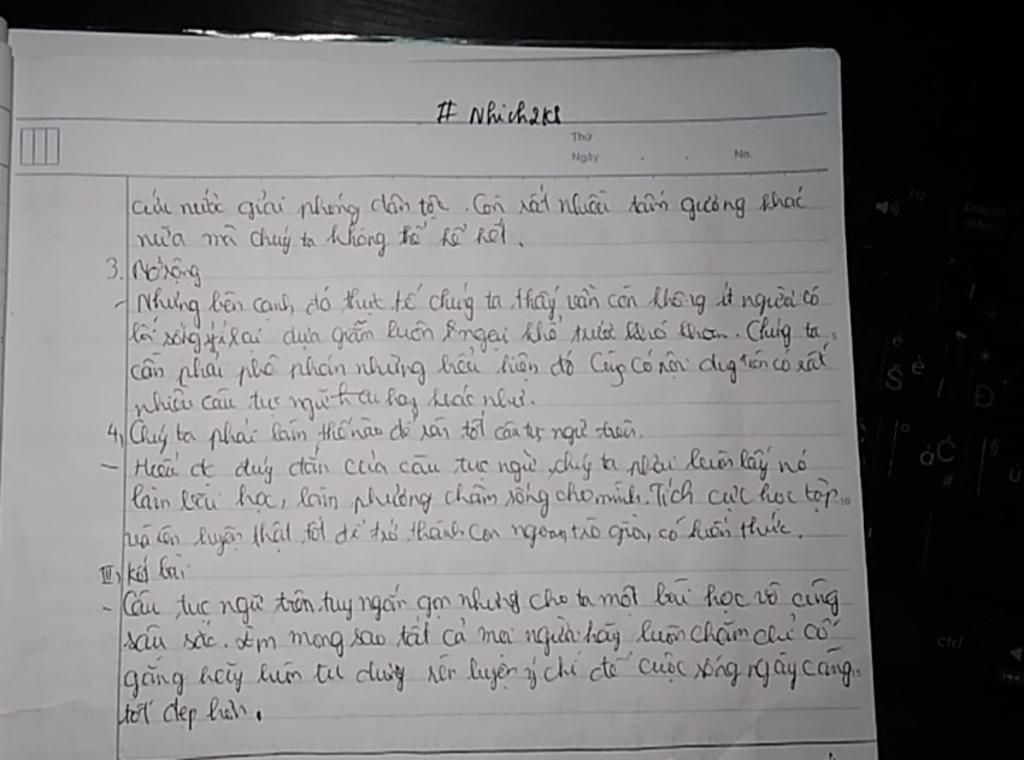 # Nhich2k8
Thứ
Ngày . . No.
cứu nước giải phóng dân tộc. Còn rất nhiều tấm gương khác
nữa mà chúg ta không thể kể hết.
3. Mở rộng
- Nhưng bên cạnh đó thực tế chúg ta thấy vẫn còn không ít người có
lối sống ỷ lại dựa dẫm luôn ngại khổ, trước khó khăn. Chúg ta
cần phải phê phán những biểu hiện đó Cùg có nội dug trên có rất
nhiều câu tục ngữ hay khác như.
4, Chúg ta phải làm thế nào để tốt câu tục ngữ trên.
- Hiểu đc đúg đắn của câu tục ngữ, chúg ta phải luôn lấy nó
làm bài học, làm phương châm sống cho mình. Tích cực học tập
và rèn luyện thật tốt để trở thành con ngoan, trò giỏi, có kiến thức.
III, Kết bài
- Câu tục ngữ trên tuy ngắn gọn nhưng cho ta một bài học vô cùng
sâu sắc. Em mong sao tất cả mọi người hãy luôn chăm chỉ cố
gắng hãy luôn rèn luyện ý chí để cuộc sống ngày càng
tốt đẹp hơn.
ctrl